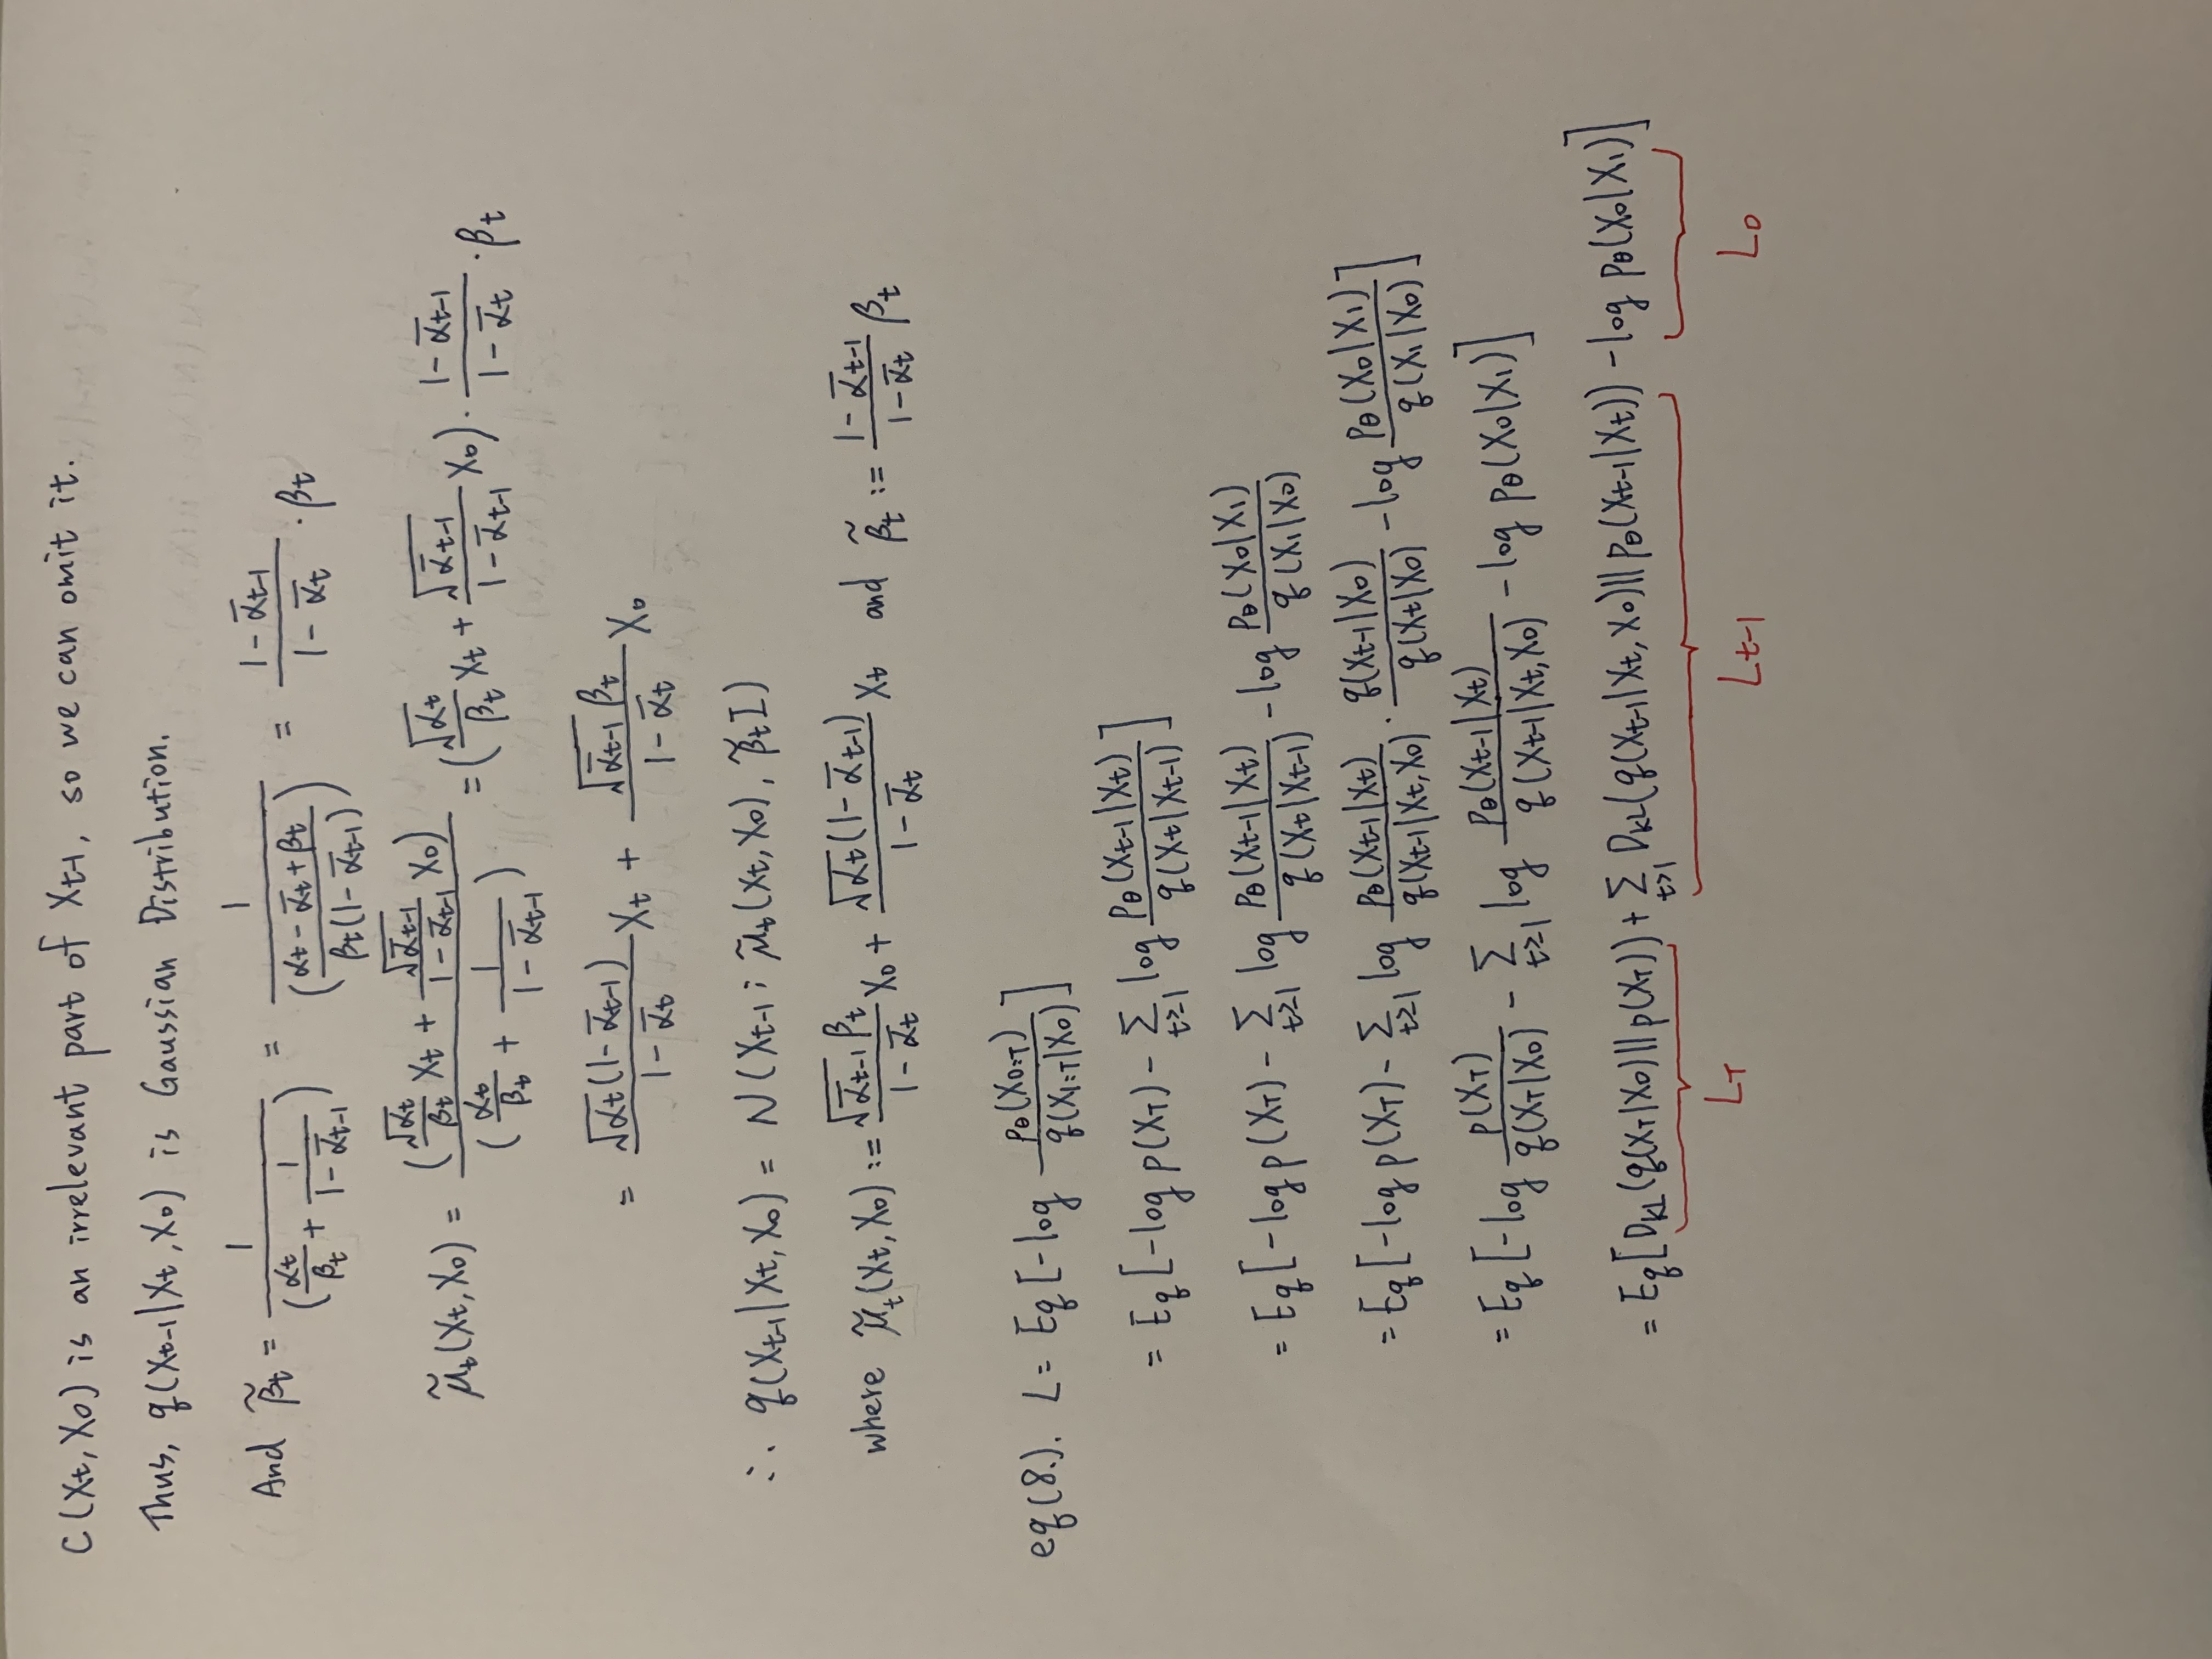 C(Xt, X0) is an irrelevant part of Xt-1, so we can omit it.
Thus, q(Xt-1|Xt, X0) is Gaussian Distribution.
And β̃t = 1 / (αt/βt + 1/(1-ᾱt-1)) = 1 / ((αt - ᾱt + βt) / (βt(1-ᾱt-1))) = (1-ᾱt-1)/(1-ᾱt) · βt
μ̃t(Xt, X0) = (√αt/βt Xt + √ᾱt-1/(1-ᾱt-1) X0) / (αt/βt + 1/(1-ᾱt-1)) = (√αt/βt Xt + √ᾱt-1/(1-ᾱt-1) X0) · (1-ᾱt-1)/(1-ᾱt) · βt
= √αt(1-ᾱt-1)/(1-ᾱt) Xt + √ᾱt-1 βt/(1-ᾱt) X0
∴ q(Xt-1|Xt, X0) = N(Xt-1; μ̃t(Xt, X0), β̃tI)
where μ̃t(Xt, X0) := √ᾱt-1 βt/(1-ᾱt) X0 + √αt(1-ᾱt-1)/(1-ᾱt) Xt and β̃t := (1-ᾱt-1)/(1-ᾱt) βt
eq(8.). L = Eq[-log pθ(X0:T)/q(X1:T|X0)]
= Eq[-log p(XT) - Σt≥1 log pθ(Xt-1|Xt)/q(Xt|Xt-1)]
= Eq[-log p(XT) - Σt≥1 log pθ(Xt-1|Xt)/q(Xt|Xt-1) - log pθ(X0|X1)/q(X1|X0)
= Eq[-log p(XT) - Σt≥1 log pθ(Xt-1|Xt)/q(Xt-1|Xt, X0) · q(Xt-1|X0)/q(Xt|X0) - log pθ(X0|X1)/q(X1|X0)]
= Eq[-log p(XT)/q(XT|X0) - Σt≥1 log pθ(Xt-1|Xt)/q(Xt-1|Xt, X0) - log pθ(X0|X1)]
= Eq[DKL(q(XT|X0)||p(XT)) + Σt>1 DKL(q(Xt-1|Xt, X0)||pθ(Xt-1|Xt)) - log pθ(X0|X1)]
LT Lt-1 L0